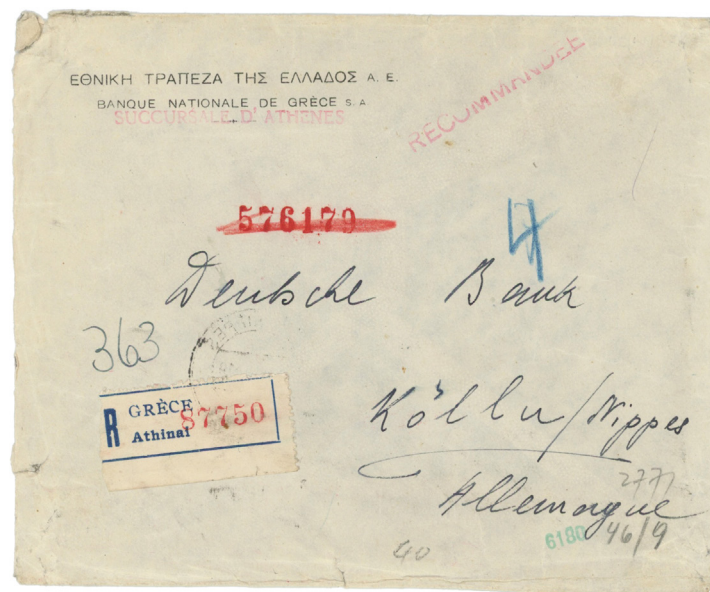 ΕΘΝΙΚΗ ΤΡΑΠΕΖΑ ΤΗΣ ΕΛΛΑΔΟΣ Α. Ε.
BANQUE NATIONALE DE GRÈCE S.A
SUCCURSALE D' ATHENES
RECOMMANDEE
576179
4
Deutsche Bank
363
R GRÈCE 87750
Athinai
Kölln/Nippes
Allemagne
2771
6180 46/9
40